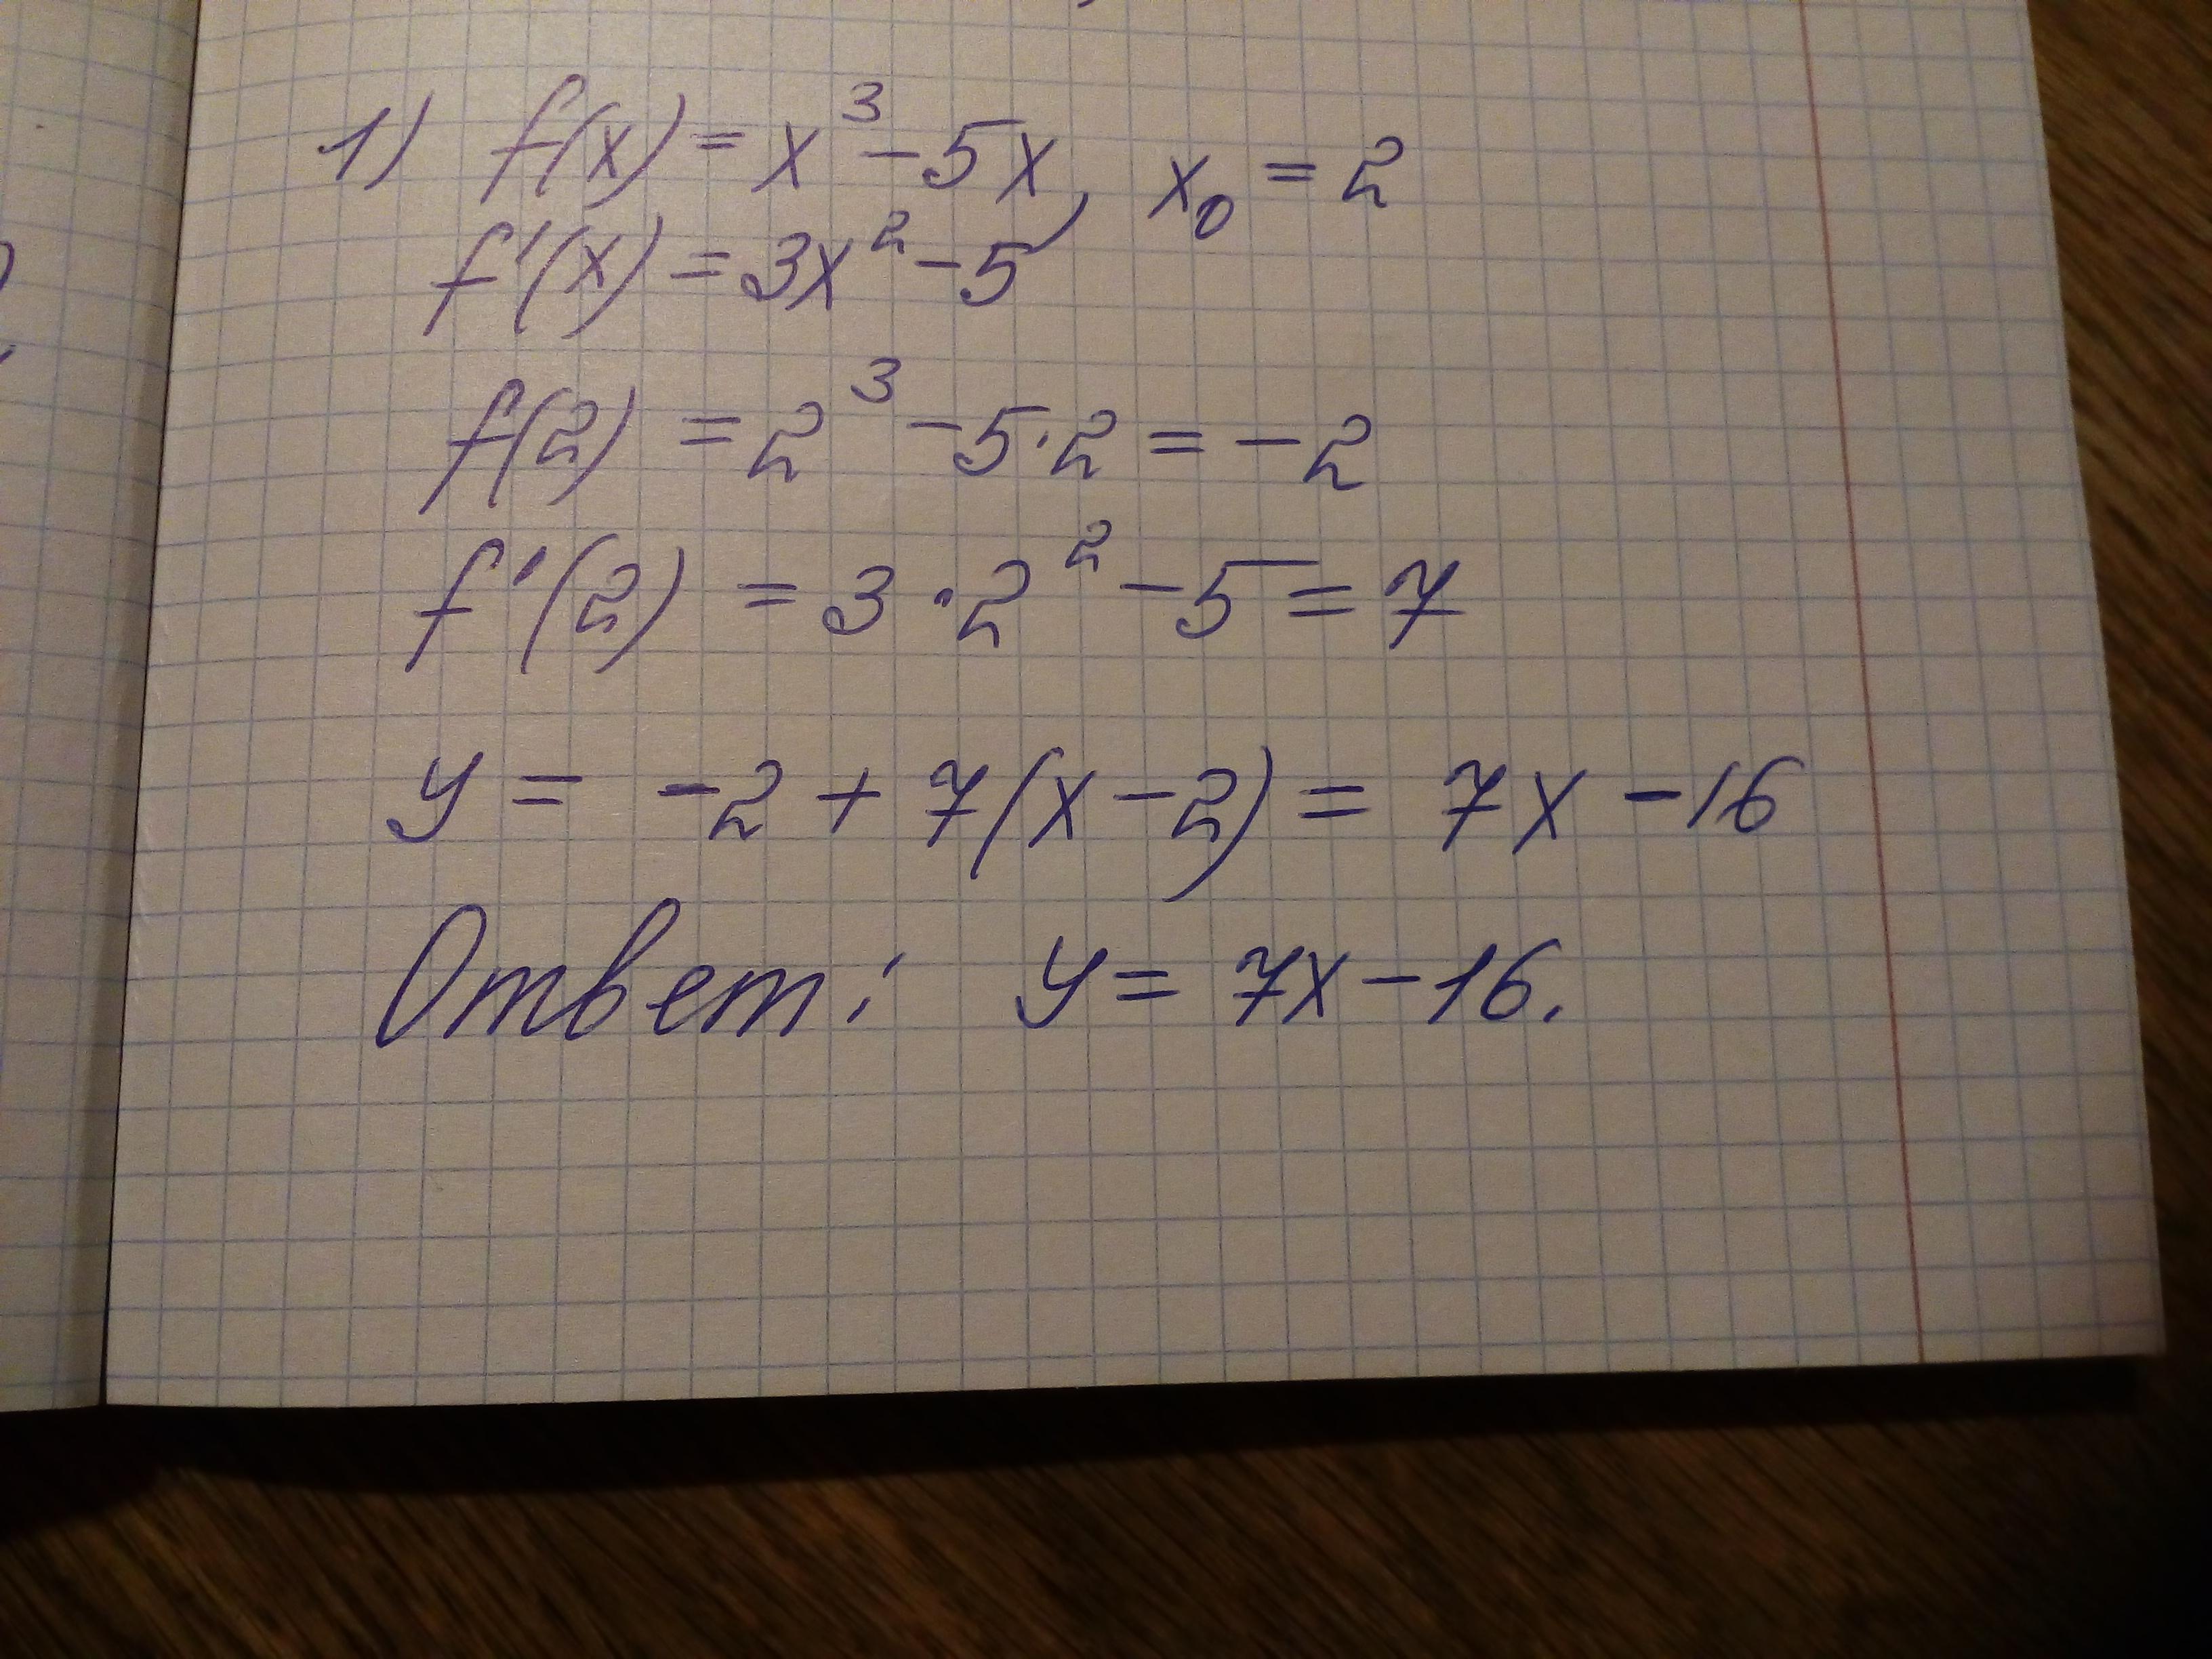 1) f(x) = x³ - 5x, x₀ = 2
f'(x) = 3x² - 5
f(2) = 2³ - 5·2 = -2
f'(2) = 3·2² - 5 = 7
y = -2 + 7(x - 2) = 7x - 16
Ответ: y = 7x - 16.